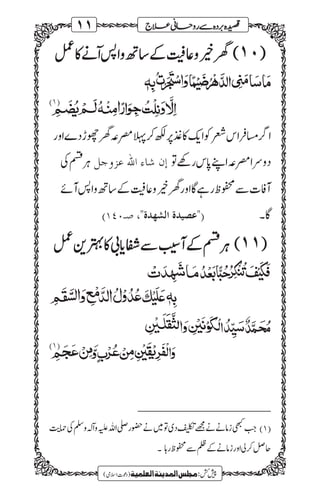 قصیدہ بردہ سے روحانی علاج
۱۱
(۱۰) گھر خیر و عافیت کے ساتھ واپس آنے کا عمل
مَا سَامَنِی الدَّهْرُ ضَيْمًا وَّاسْتَجَرْتُ بِهٖ
اِلَّا وَنِلْتُ جِوَارًا مِّنْهُ لَمْ يُضَمٖ (۱)
اگر مسافر اس شعر کو ایک کاغذ پر لکھ کر پہلا مصرعہ گھر چھوڑ دے اور
دوسرا مصرعہ اپنے پاس رکھے تو إن شاء الله عزوجل ہر قسم کی
آفات سے محفوظ رہے گا اور گھر خیر و عافیت کے ساتھ واپس آئے
گا۔ ("عصيدة الشهدة"، صـ١٤٠)
(۱۱) ہر قسم کے آسیب سے شفایابی کا بہترین عمل
فَكَيْفَ تُنْكِرُ حُبًّا بَعْدَ مَا شَهِدَتْ
بِهٖ عَلَيْكَ عُدُوْلُ الدَّمْعِ وَالسَّقَمٖ
مُحَمَّدٌ سَيِّدُ الْكَوْنَيْنِ وَالثَّقَلَيْنِ
وَالْفَرِيْقَيْنِ مِنْ عُرْبٍ وَّمِنْ عَجَمٖ (۱)
(۱) جب کبھی زمانے نے مجھے تکلیف دی تو میں نے حضور صلی اللہ علیہ وآلہ وسلم کی حمایت
حاصل کر لی اور زمانے کے ظلم سے محفوظ رہا۔
پیش کش: مجلس المدينة العلمية (دعوت اسلامی)